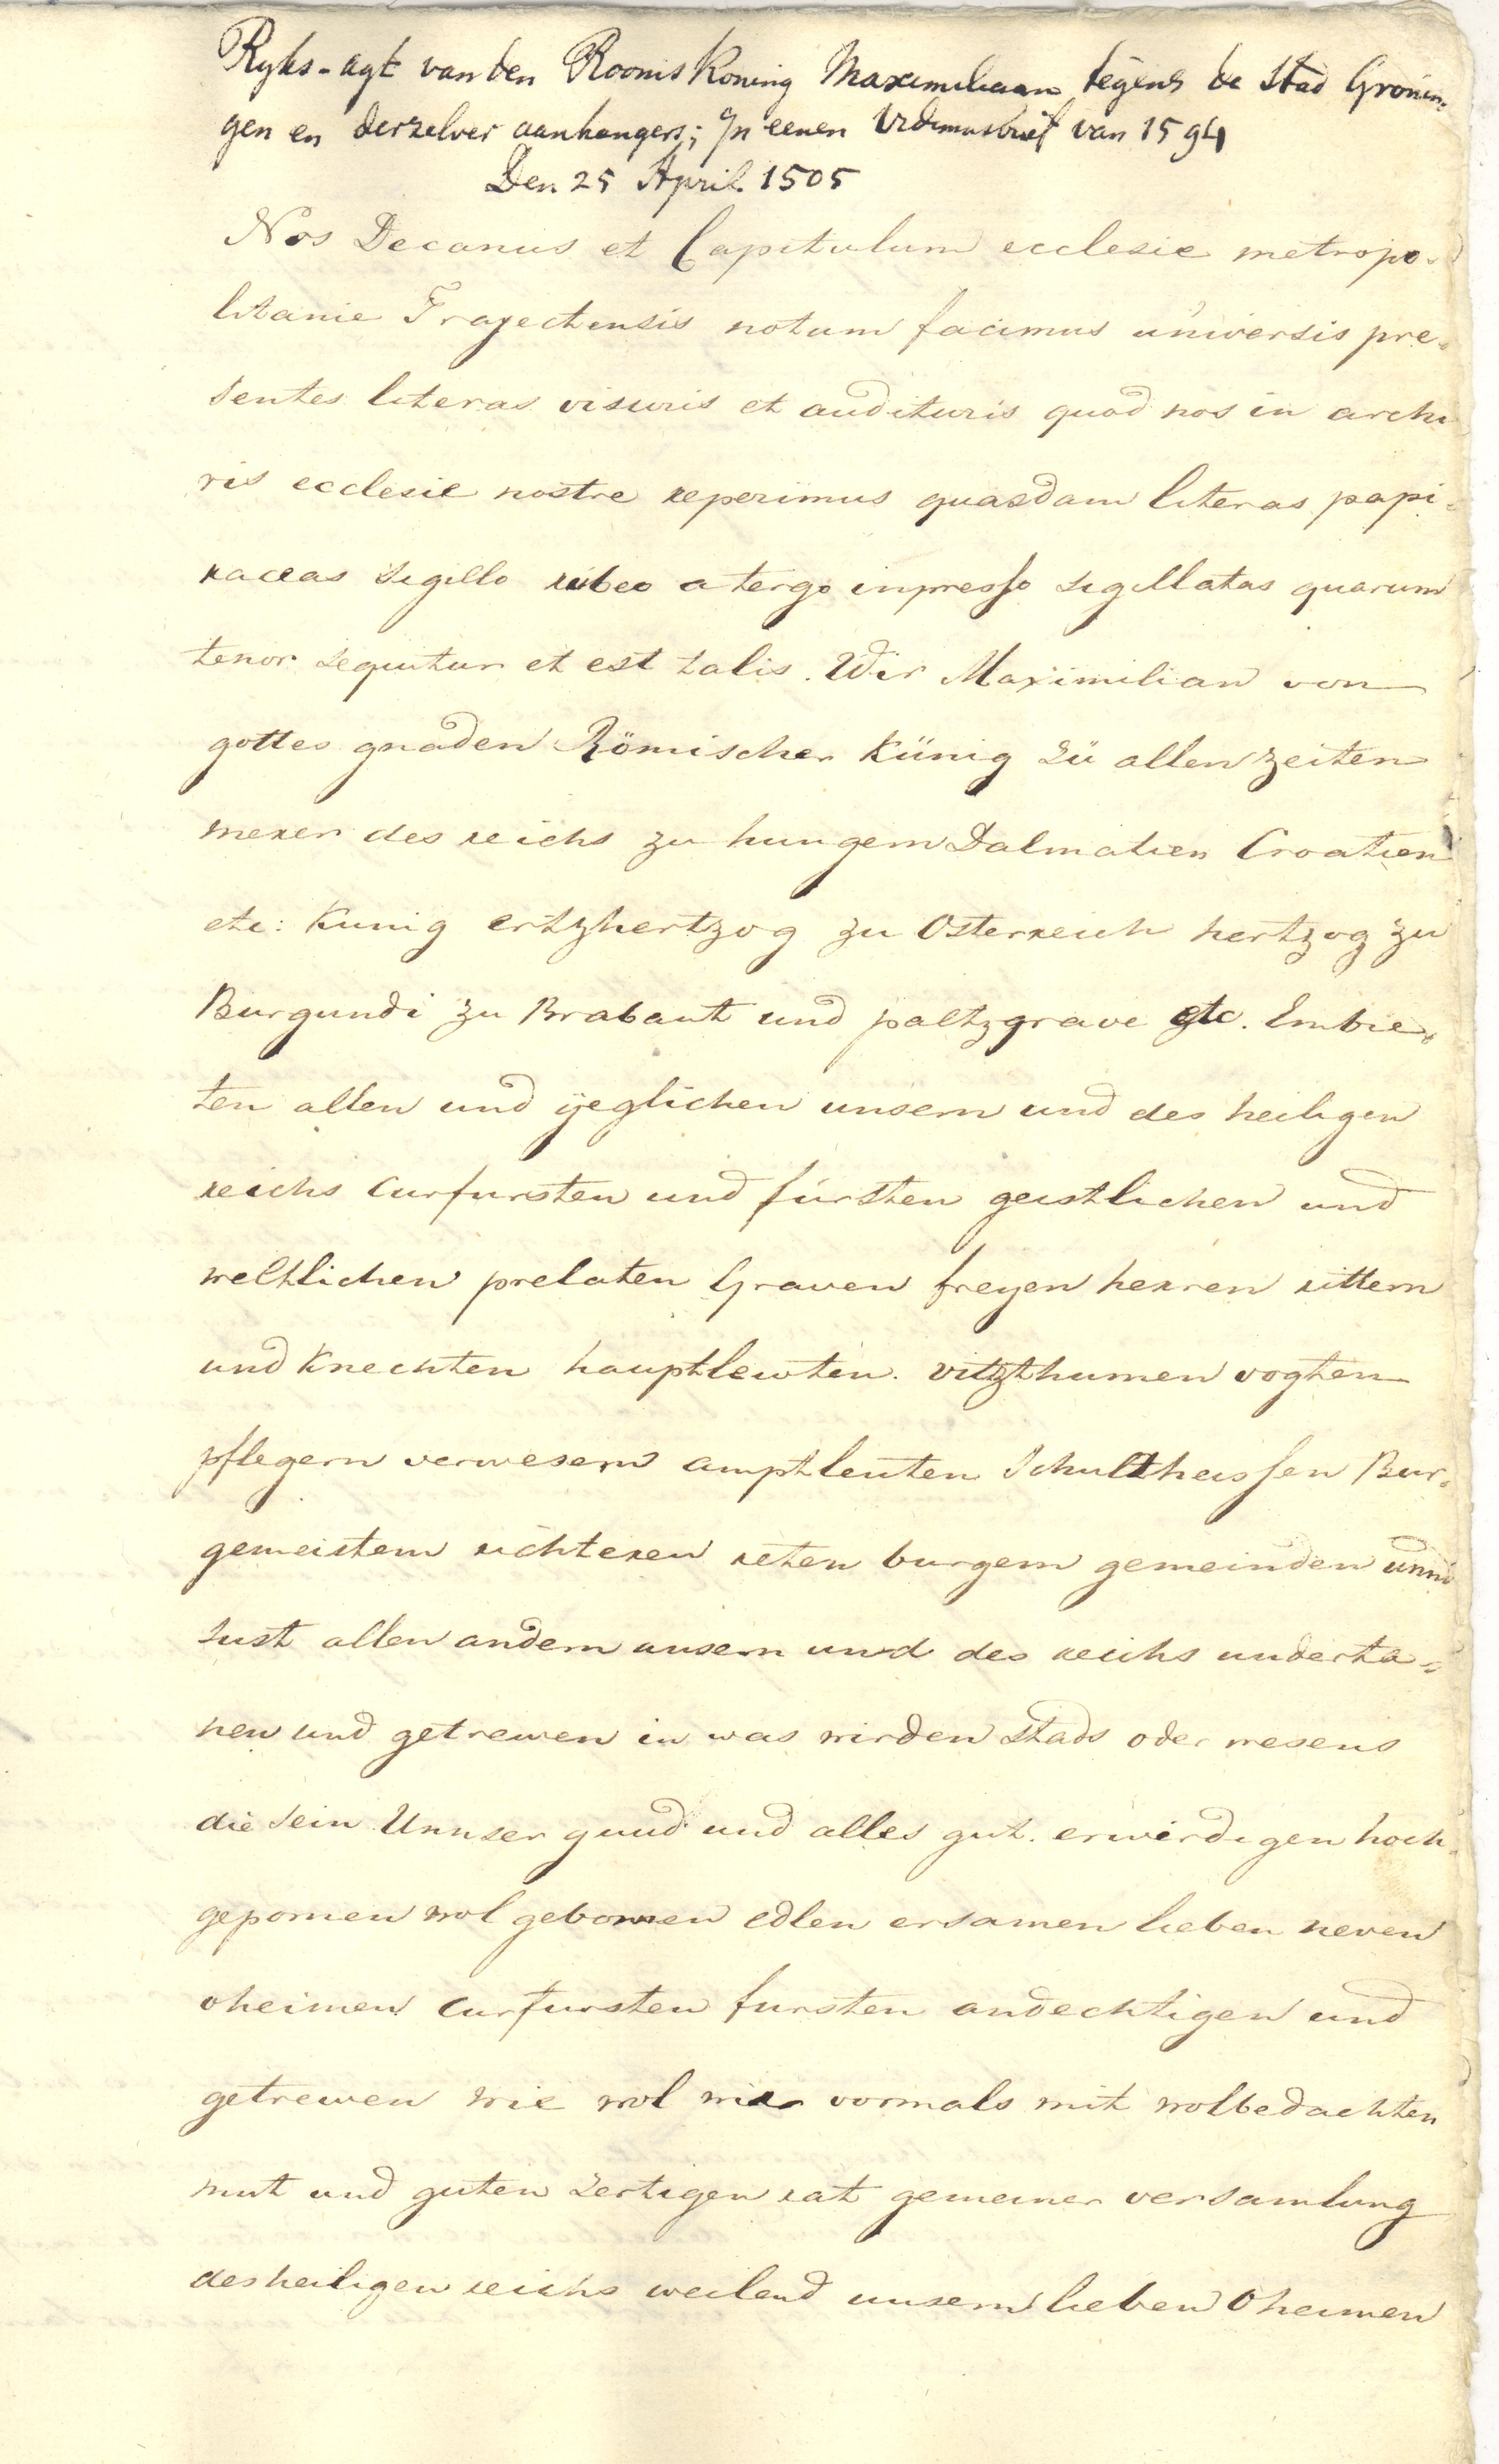 Ryks-agt van den Rooms Koning Maximiliaan tegens de Stad Gronin-
gen en derzelver aanhangers; In eenen Vidimusbrief van 1594
Den 25 April 1505
Nos Decanus et Capitulum ecclesie metropo-
litanie Trajectensis notum facimus universis pre-
sentes literas visuris et audituris quod nos in archi
vis ecclesie nostre reperimus quasdam literas papi-
raceas sigillo rubeo a tergo inpresso sigillatas quarum
tenor sequitur et est talis. Wir Maximilian von
gottes gnaden Römischer Künig zü allen zeiten
merer des reichs zu hungern Dalmatien Croatien
etc: Kunig ertzhertzog zu Osterreich hertzog zu
Burgundi zu Brabant und paltzgrave etc. Embie-
ten allen und yeglichen unsern und des heiligen
reichs Curfursten und fürsten geistlichen und
weltlichen prelaten Graven freyen herren rittern
und Knechten hauptlewten. vitzthumen vogten
pflegern verwesern amptleuten Schultheissen Bur-
gemeistern richteren reten burgern gemeinden unnd
sust allen andern unsern und des reichs underta-
nen und getrewen in was wirden stads oder wesens
die sein Unnser gnad und alles gut. erwirdigen hoch-
gepornen wolgebornen edlen ersamen lieben neven
oheimen Curfursten fursten andechtigen und
getrewen wie wol wir vormals mit wolbedachten
mut und guten zertigen rat gemeiner versamlung
des heiligen reichs weilend unsern lieben Oheimen